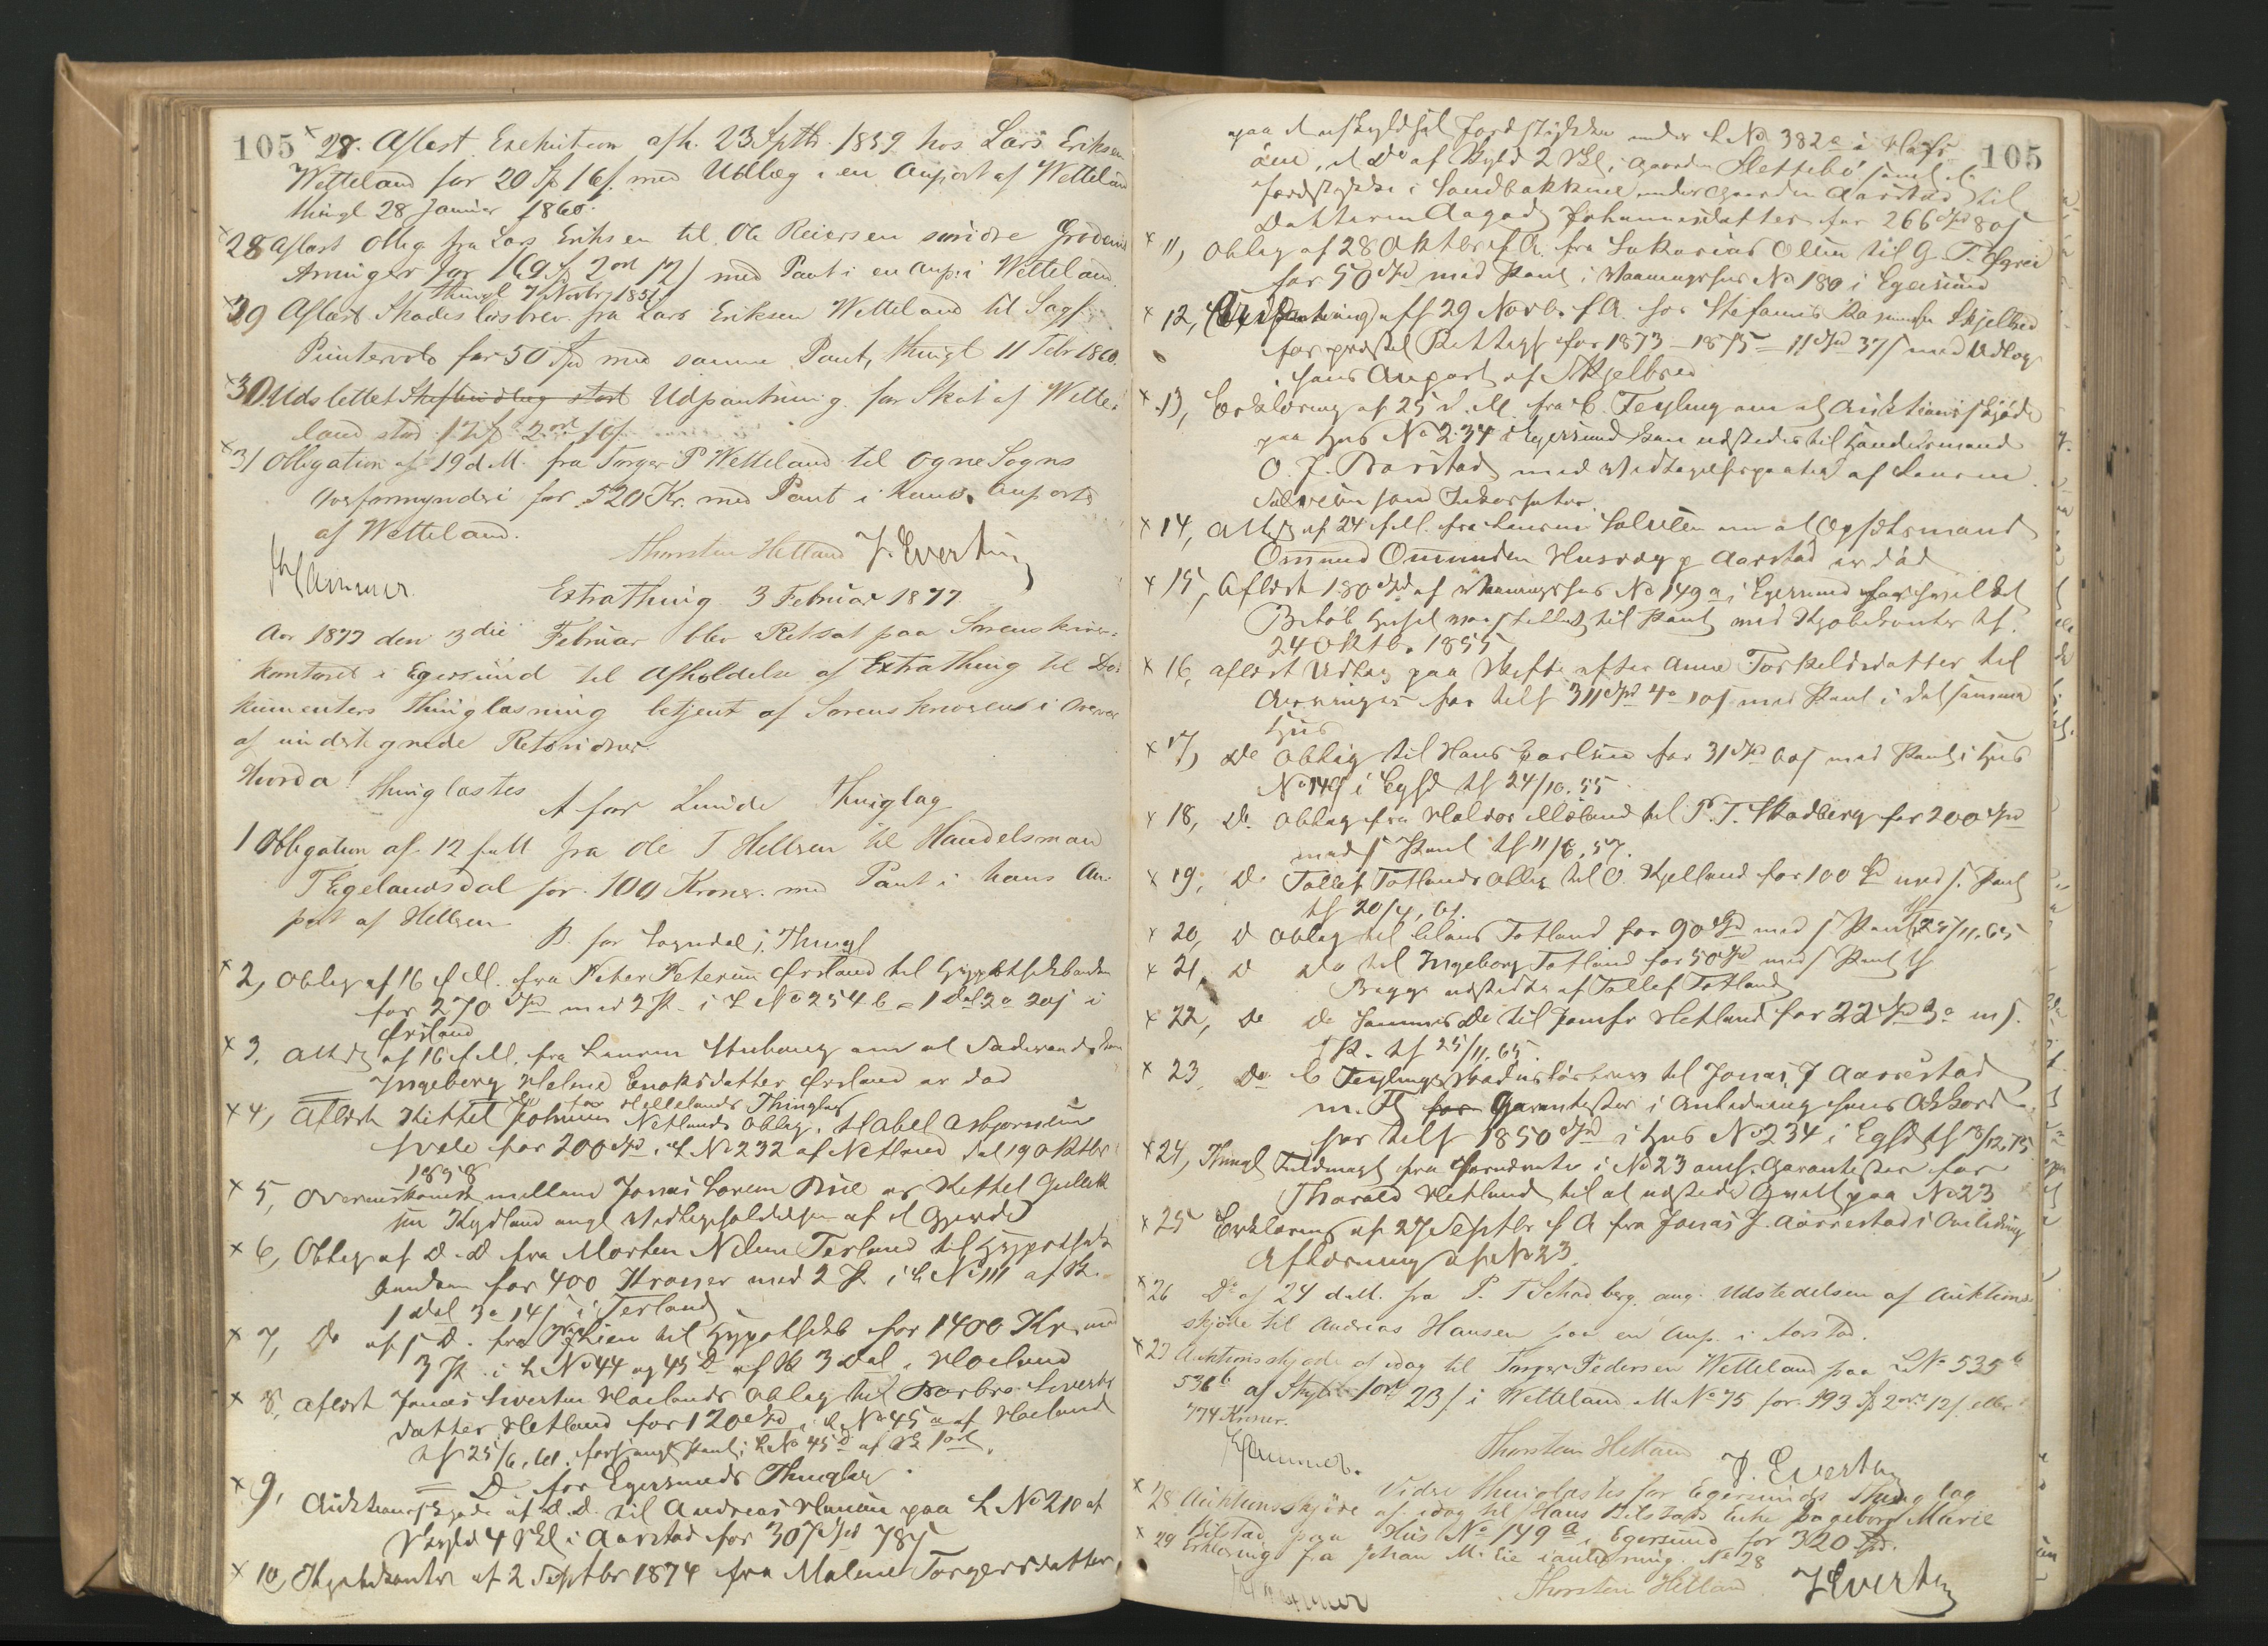 105
28. Aflæst Exekution afh. 23 Septb. 1859 hos Lars Eriksen
Wetteland for 20 Sp 16 s. med Udlæg i en Anpart af Wetteland
thingl 28 Januar 1860.
28 Aflæst Oblig fra Lars Eriksen til Ole Reiersen søndre
Arvinger for med Pant i en Anp. i Wetteland
thingl 7 Novbr 185
29 Aflæst Skadesløsbrev fra Lars Eriksen Wetteland til Sagf.
Puntervold for 50 Spd med samme Pant, thingl 11 Febr 1860.
30. Udslettet Udpantning for Skat af Wette-
land stor
31 Obligation af 19 d. M. fra Torger P Wetteland til Ogne Sogns
Overformynderi for 520 Kr. med Pant i hans Anparts
af Wetteland.
Hammer. Thorsten Hetland J. Evertsen
Extrathing 3 Februar 1877.
Aar 1877 den 3die Februar blev Retsat paa Sorenskriver-
kontoret i Egersund til Afholdelse af Extrathing til Do-
kumenters thinglæsning betjent af Sorenskriveren i Overvær
af undertegnede Retsvidner.
Hvorda! thinglæstes A for Lunde Thinglag
1 Obligation af 12 f. M fra Ole T Hellren til Handelsmand
T Egelandsdal for 100 Kroner med Pant i hans An-
part af Hellren
B. for Sogndals Thingl
2, Oblig af 16 f. M. fra Peter Petersen Ørsland til Hypothekbanken
for 270 Spd med 2 Pr. i L No 254 b = 1 Dal 2 o 20 s i
Ørsland
3, Attest af 16 f. M. fra Lensm. om at Føderaadskone
Ingeborg Malene Enoksdatter Ørsland er død
C for Hellelands Thinglag
4, Aflæst Kittel Netlands Oblig til Abel Asbjørnsen
for 200 Spd i L No 232 af Netland dat 19 Oktbr
1858
5, Overenskomst mellem Jonas Sørensen og Kittel Gullik-
sen Kydland angl Vedligeholdelsen af et Gjerde
6, Oblig af D. D fra Morten Nilsen Terland til Hypothek-
banken for 400 Kroner med 2 Pr. i L No 111 af Sk.
1 Dal 3 o 14 s i Terland
7, Do af s D. fra til Hypothekb for 1400 Kr med
3 Pr. i L No 44 og 45 d af Sk 3 Dal i Hæland
8, Aflæst Jonas Sivertsen Hælands Oblig til Barbro Siverts-
datter Hetland for 120 Spd i L No 45 a af Hæland
th 25/6.61. forsaavidt Pant i L No 45 d af Sk 1 ort.
D. for Egersunds Thinglag
9, Auktionsskjøde af D. D. til Andreas Hansen paa L No 210 af
Skyld 4 Sk i Aarstad for 307 Spd 78 s
10, Kjøbekontr af 2 Septbr 1874 fra Malene Torgersdatter
105
paa et uskyldsat Jordstykke under L No 382 a i
øen, et Do af Skyld 2 Sk i Gaarden Slettebø samt et
Jordstykke i Sandbakkene under Gaarden Aarstad til
Datteren Aagad Johannesdatter for 266 Spd 80 s
11, Oblig af 28 Oktbr f. A. fra Sakarias Olsen til G. T.
for 50 Spd med Pant i Vaaningshus No 180 i Egersund
12, Udpantning afh 29 Novb. f. A. hos Stefanus Rasmussen Skjelbred
for 1873 - 1875 = 11 Spd 37 s med Udlæg
i hans Anpart af Skjelbred
13, Erklæring af 25 d. M. fra C. Feyling om at Auktionsskjøde
paa Hus No 234 i Egersund kan udstedes til Handelsmand
O. J. Barstad med Vedtagelsespaategn af Lensm.
Salvesen som Inkassator
14, Attest af 24 f. M. fra Lensm. Salvesen om at Opsidsmand
Omund Omundsen Husvæg p Aarstad er død
15, Aflæst 180 Spd af Vaaningshus No 149 a i Egersund for hvilket
Beløb Huset var stillet til Pant med Kjøbekontr th
24 Oktb. 1855
16, aflæst Udlæg paa Skifte efter Anne Torkelsdatter til
Arvinger for tils 311 Spd 4 o 10 s med Pant i det samme
Hus
17, Do Oblig til Hans Carlsen for 31 Spd 60 s med Pant i Hus
No 149 i Egsd th 24/10.55
18, Do Oblig fra Halvor Mæland til P. T. Skadberg for 200 Spd
med s Pant th 11/6.57.
19, Do Tollef Totlands Oblig til O. Kjelland for 100 Spd med s. Pant
th 20/4.61.
20, D Oblig til Claus Totland for 90 Spd med s Pant th 25/11.65
21, D Do til Ingeborg Totland for 50 Spd med s Pant th
Begge udstedte af Tollef Totland
22, Do Do Sammes Do til Jomfr Hetland for 22 Spd 3 o m s.
Pt. th 25/11.65.
23 Do C Feylings Skadesløsbrev til Jonas J Aarrestad
m. Fl Garantister i Anledning hans Akkord
for tils 1850 Spd i Hus No 234 i Egsd th 18/12.75
24, Thingl Fuldmagt fra Garantister for
Tharald Hetland til at udstede Qvitt paa No 23
25 Erklæring af 27 Septbr f A fra Jonas J. Aarrestad i Anledning
Aflæsning af No 23.
26 Do af 24 d. M. fra P. T Schadberg ang. Udstedelsen af Auktions-
skjøde til Andreas Hansen paa en Anp. i Aarstad.
27 Auktionsskjøde af idag til Torger Pedersen Wetteland paa L No 535 b
536 b af Skyld 1 ort 23 s i Wetteland M No 75 for 193 Sp 2 ort 12 s. eller
774 Kroner.
Hammer. Thorsten Hetland J. Evertsen
Vidre thinglæstes for Egersunds Thinglag
28 Auktionsskjøde af idag til Hans Bilstads Enke Ingeborg Marie
Bilstad paa Hus No 149 a i Egersund for 320 Spd.
29 Erklæring fra Johan M. Eie i anledning No 28
Hammer Thorsten Hetland J Evertsen